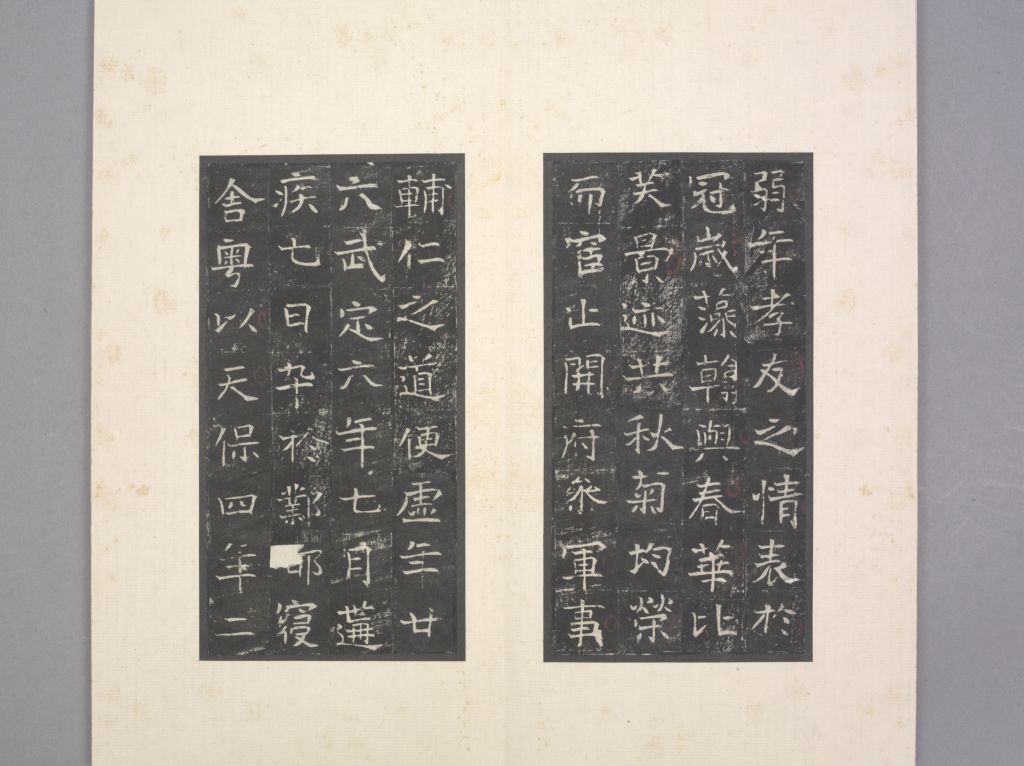 弱年孝友之情表於
冠歲藻翰與春華比
美景迹共秋菊均榮
而宦止開府參軍事
輔仁之道便虛年廿
六武定六年七月遘
疾七日卒於鄴都寢
舍粤以天保四年二